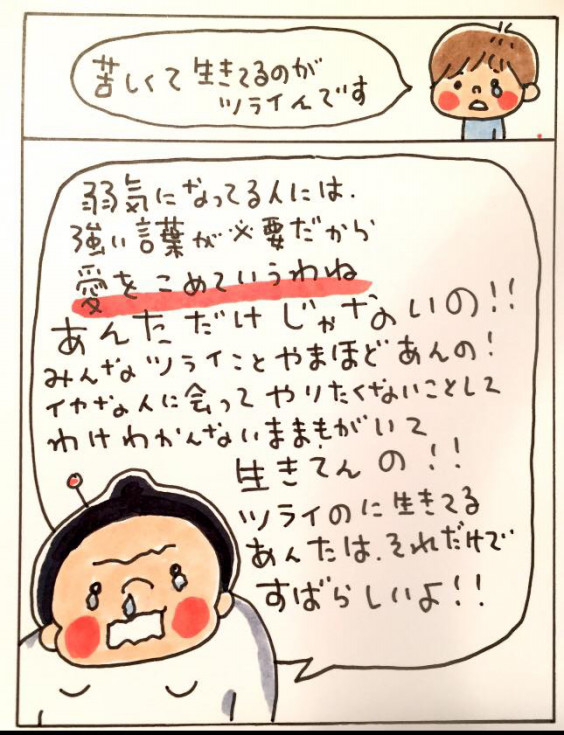 苦しくて生きてるのが
ツライんです
弱気になってる人には、
強い言葉が必要だから
愛をこめていうわね
あんただけじゃないの!!
みんなツライことやまほどあんの!
イヤな人に会ってやりたくないことして
わけわかんないままもがいて
生きてんの!!
ツライのに生きてる
あんたは、それだけで
すばらしいよ!!